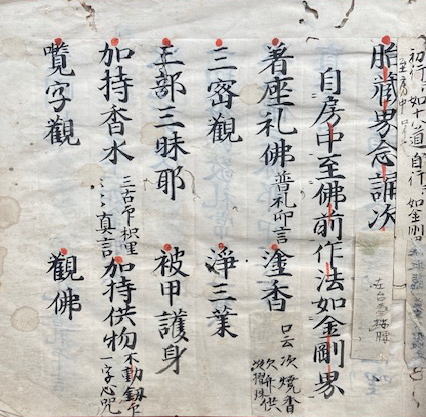 初行ハ如十八道自行ハ如金剛
胎蔵界念誦次
自房中至佛前作法如金剛界
著座礼佛 普礼印言 塗香 口云次焼香
三密觀 淨三業
三部三昧耶 被甲護身
加持香水 三古印枳里〻〻真言 加持供物 不動釼印一字心咒
覽字觀 觀佛